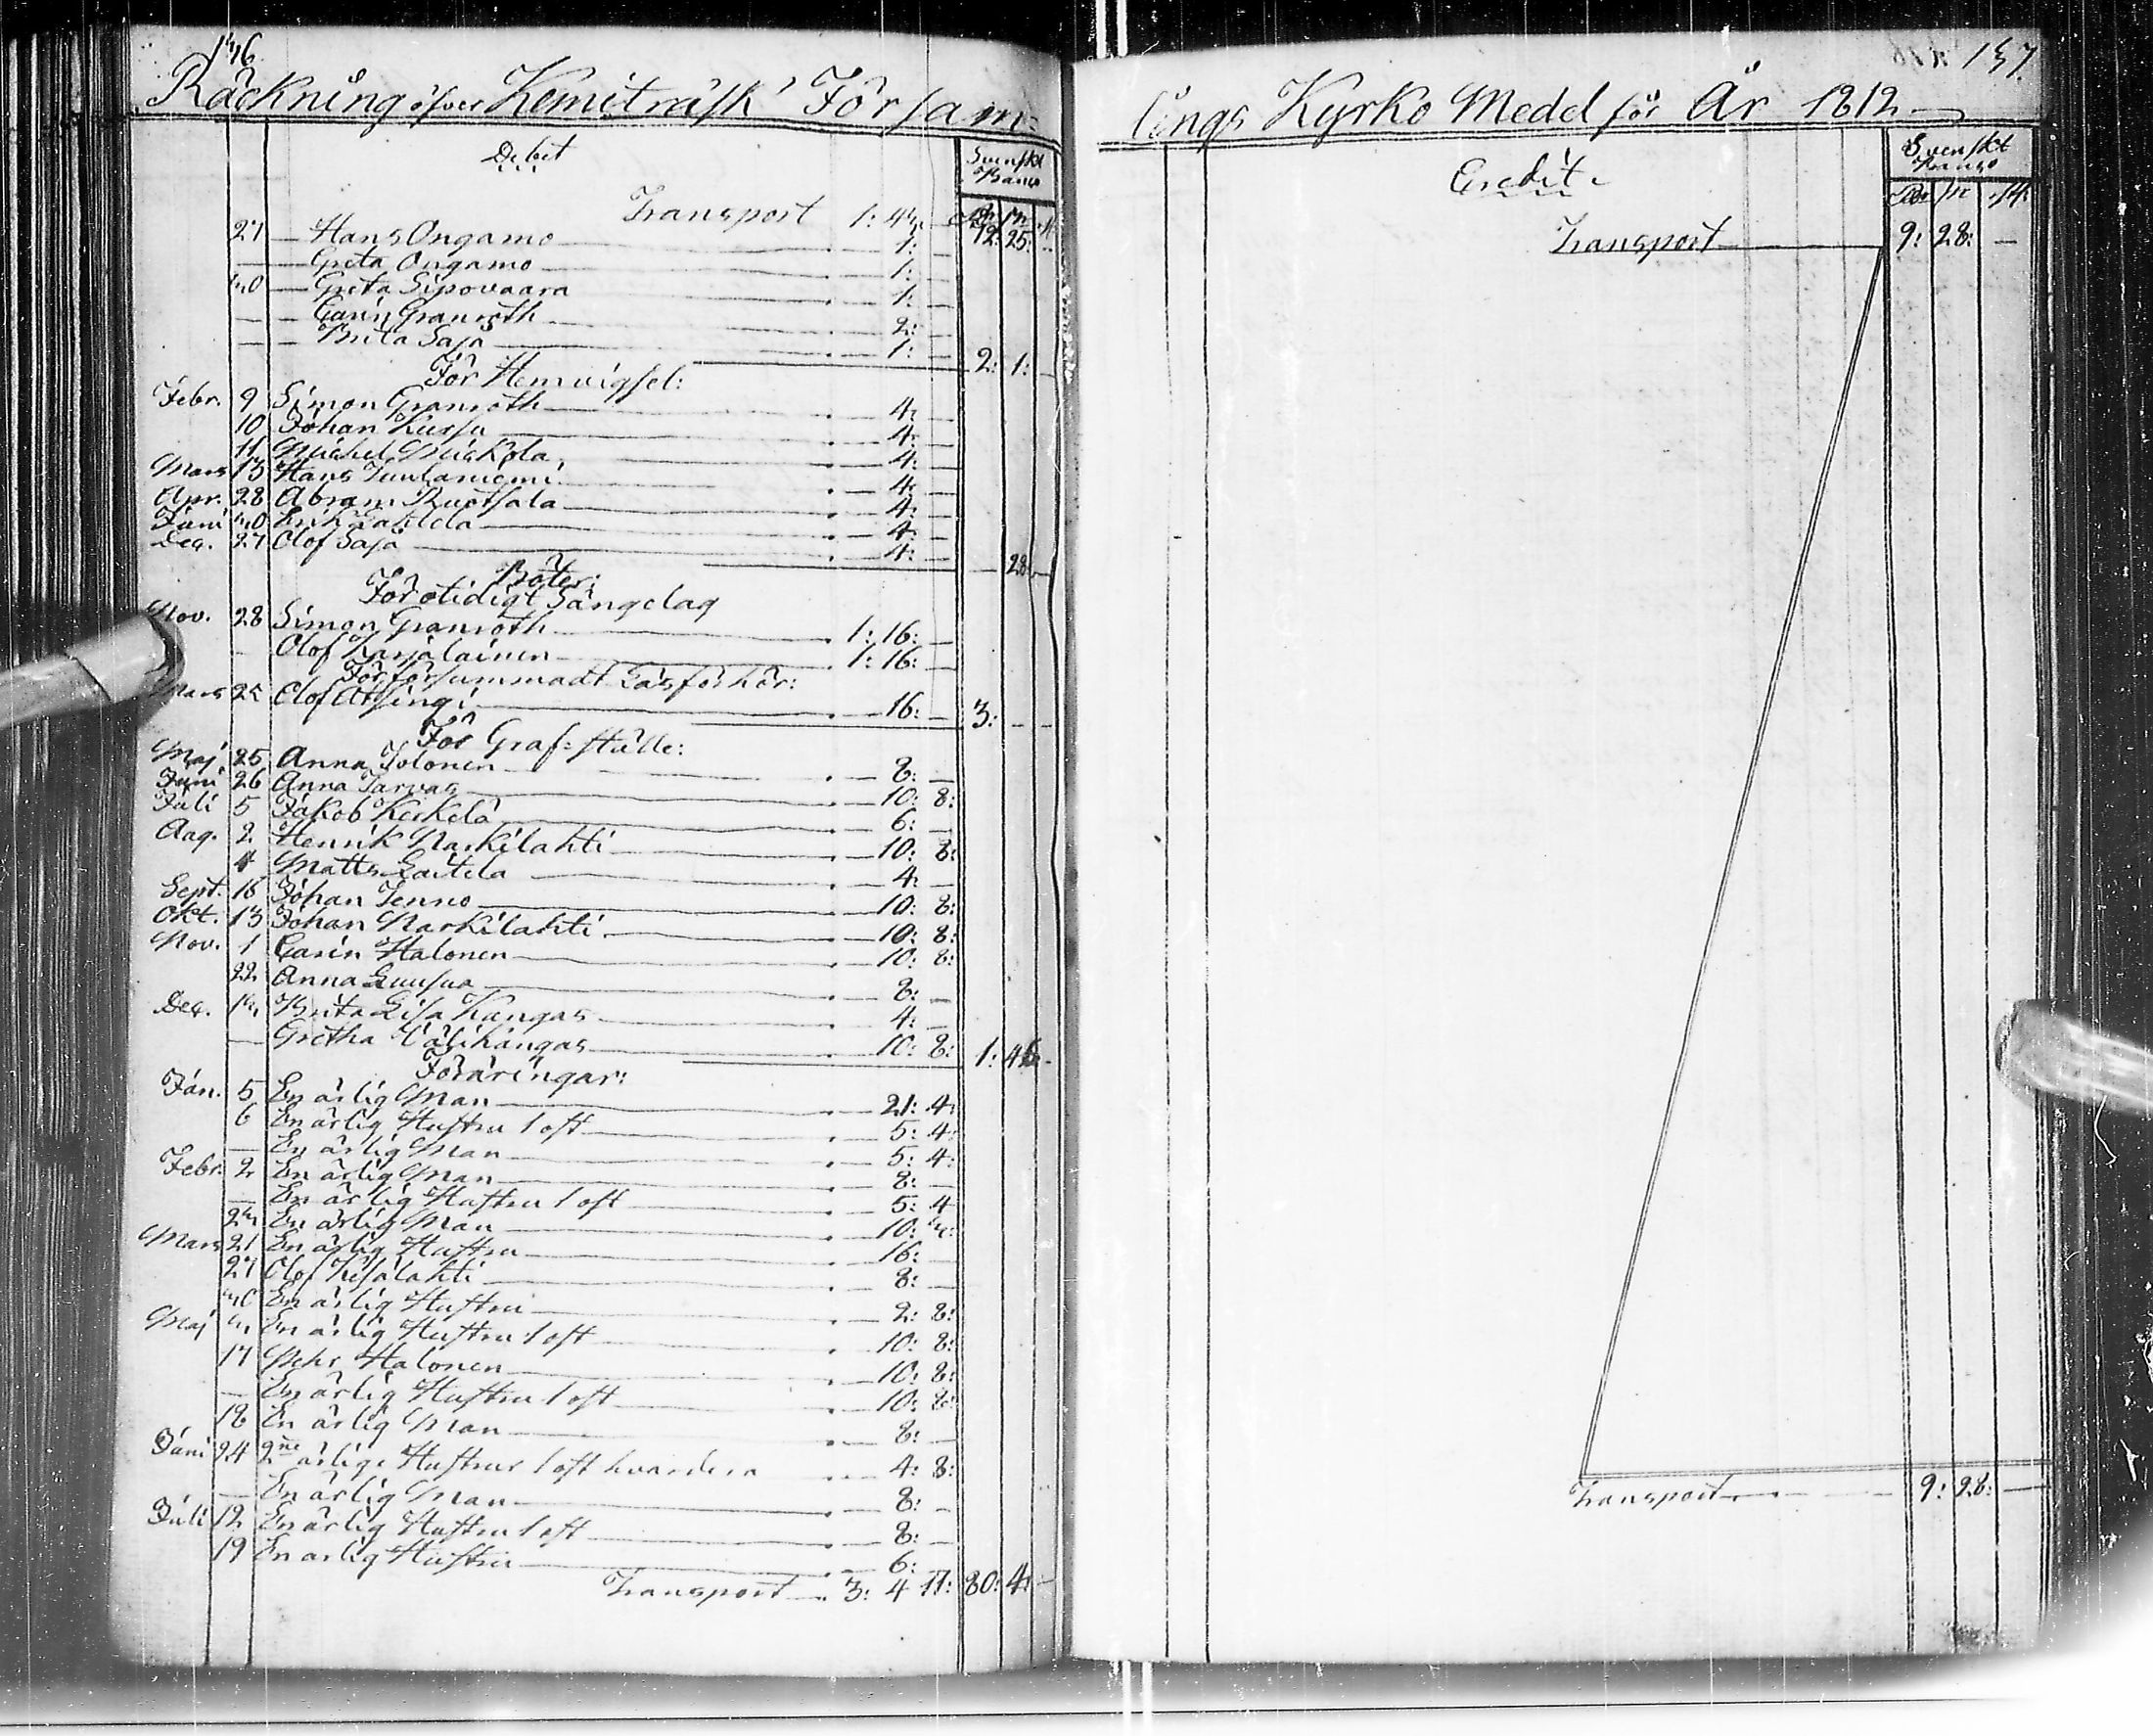 136
Räckning öfver Kemiträsk Församlings
Debet
Svenskt Banco
Transport 1: 43. — 72: 25: —
27 — Hans Ongamo — 1: —
— Greta Ongamo — 1: —
30 — Greta Sipovaara — 1: —
— — Carin Granroth — 2: —
— — Brita Saja — 1: — 2: 1: —
För Hemvigsel:
Febr. 9 Simon Granroth — 4: —
10 Johan Kursu — 4: —
11 Michel Mickola — 4: —
Mars 13 Hans Juulaniemi — 4: —
Apr. 28 Abram Ruotsala — 4: —
Juni 30 Erik — 4: —
Dec. 27 Olof Saja — 4: — — 28 —
Böter:
För otidigt Sängelag
Nov. 28 Simon Granroth — 1: 16: —
— Olof Karjalainen — 1: 16: —
För försummadt Läsförhör:
Mars 25 Olof Atsingi — 16: — 3: — —
För Graf-ställe:
Maj 25 Anna Tolonen — 8: —
Juni 26 Anna Tarvas — 10: 8:
Juli 5 Jakob Kerkelä — 6: —
Aug. 2 Henrik Narkilahti — 10: 8:
4 Matts Laitela — 4: —
Sept. 16 Johan Tenno — 10: 8:
Okt. 13 Johan Narkilahti — 10: 8:
Nov. 1 Carin Halonen — 10: 8:
22 Anna Luusua — 8: —
Dec. 13 Brita Lisa Kangas — 4: —
— Gretha Välikangas — 10: 8: 1: 46 —
Föräringar:
Jan. 5 En ärlig Man — 21: 4:
6 En ärlig Hustru 1 oft — 5: 4:
— En ärlig Man — 5: 4:
Febr. 2 En ärlig Man — 8: —
— En ärlig Hustru 1 oft — 5: 4
23 En ärlig Man — 10:
Mars 21 En ärlig Hustru — 16: —
27 Olof Kisalahti — 8: —
30 En ärlig Hustru — 2: 8:
Maj 3 En ärlig Hustru 1 oft — 10: 8:
17 Pehr Halonen — 10: 8:
— En ärlig Hustru 1 oft — 10: 8:
18 En ärlig Man — 8: —
Juni 24 2ne ärlige Hustrur 1 oft hvardera — 4: 8:
— En ärlig Man — 8: —
Juli 12 En ärlig Hustru 1 oft — 8: —
19 En ärlig Hustru — 6: —
Transport — 3: 4 11: 80: 4: —
137.
lings Kyrko Medel för År 1812 —
Credit
Svenskt Banco
Transport — 9: 28: —
Transport — 9: 28: —